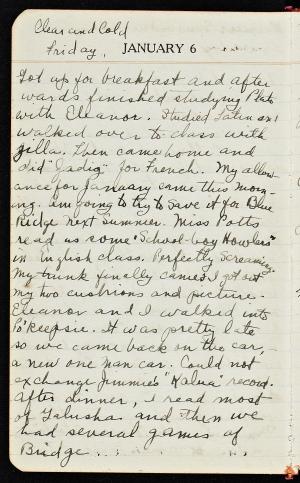 Clear and Cold
Friday, JANUARY 6
Got up for breakfast and after
wards finished studying Plato
with Eleanor. Studied Latin and
walked over to class with
Zilla. Then came home and
did "Zadig" for French. My allow-
ance for January came this morn-
ing. am going to try to save it for Blue
Ridge next summer. Miss Potts
read us some "School-boy Howlers"
in English class. Perfectly screaming.
My trunk finally came! I got out
my two cushions and picture.
Eleanor and I walked into
Po'keepsie. It was pretty late
so we came back on the car,
a new one man car. Could not
exchange Jimmie's "Kalua" record.
After dinner, I read most
of Talusha and then we
had several games of
Bridge.